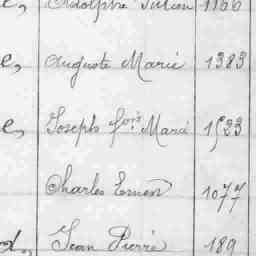 e, Adolphe Julien 1166
e, Auguste Marie 1383
e, Joseph fois Marie 1533
Charles Ernest 1077
d, Jean Pierre 189